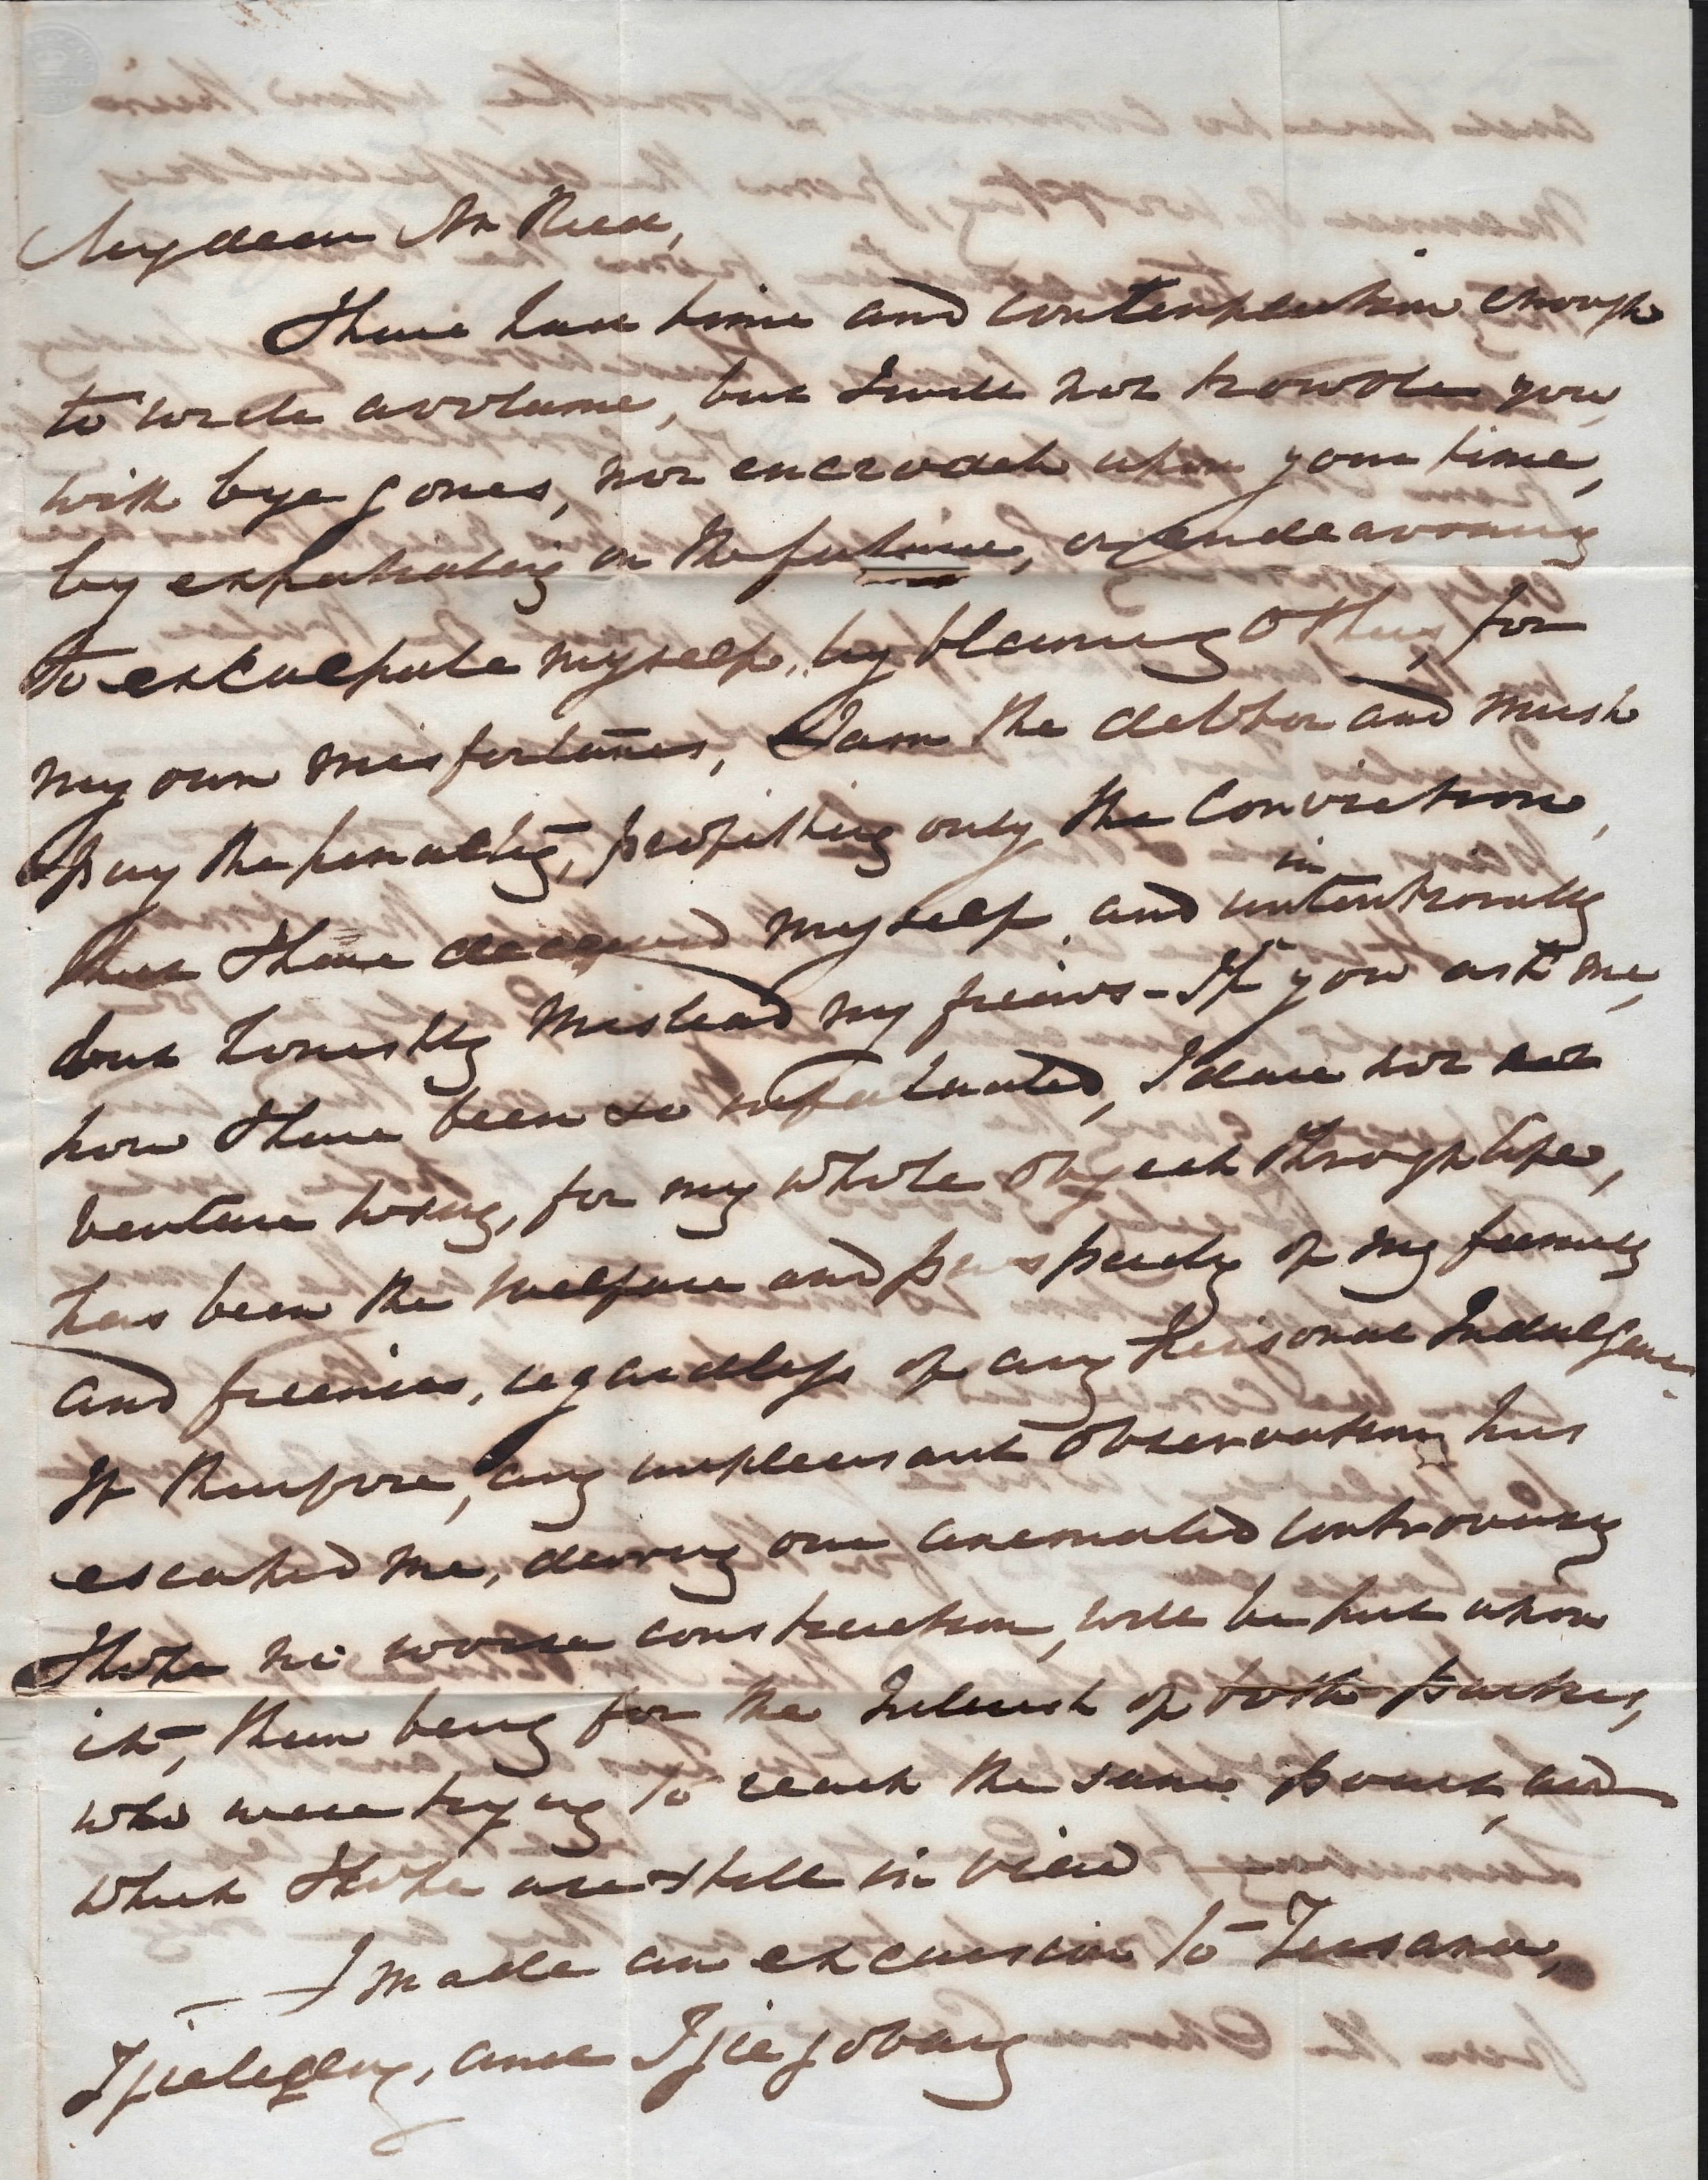 My dear Mr Reed,
I have had time and contemplation enough
to write a volume, but I will not trowble you
with bye gones, nor encroach upon your time,
by expatiating on the future, or endeavoring
to exculpate myself, by blaming others, for
my own misfortunes, I am the debtor and must
pay the penalty, profitting only the Conviction,
that I have deceived myself and in
untentionally
but honestly mislead my friends - If you ask me,
how I have been so infatuated, I dare not
venture to say, for my whole object through life,
has been the welfare and prosperity of my family
and friends, regardless of any Personal Indulgence.
If therefore, any unpleasant observation has
escaped me, during our animated controversy
I hope no worse construction, will be put upon
it, them being for the Interest of both parties,
who were trying to reach the same point, and
which I hope are still in view
I made an excursion to
Tjielegon, and